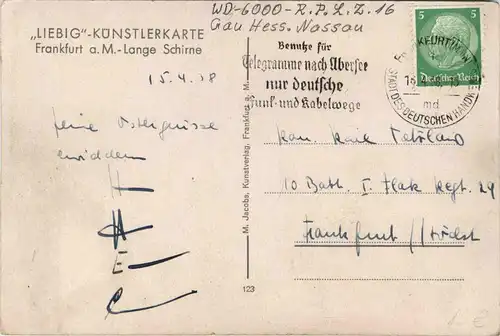 „LIEBIG”-KÜNSTLERKARTE
Frankfurt a.M.-Lange Schirne
15.4.38
WD-6000-R.P.L.Z.16
Gau Hess. Nassau
Benutze für
Telegramme nach Übersee
nur deutsche
Funk- und Kabelwege
5 5
Deutsches Reich
FRANKFURT(MAIN)
STADT DES DEUTSCHEN HANDWERKS
md
M. Jacobs, Kunstverlag, Frankfurt a. M.
10 Batt. I. Flak Regt. 29
Frankfurt // Höchst
123